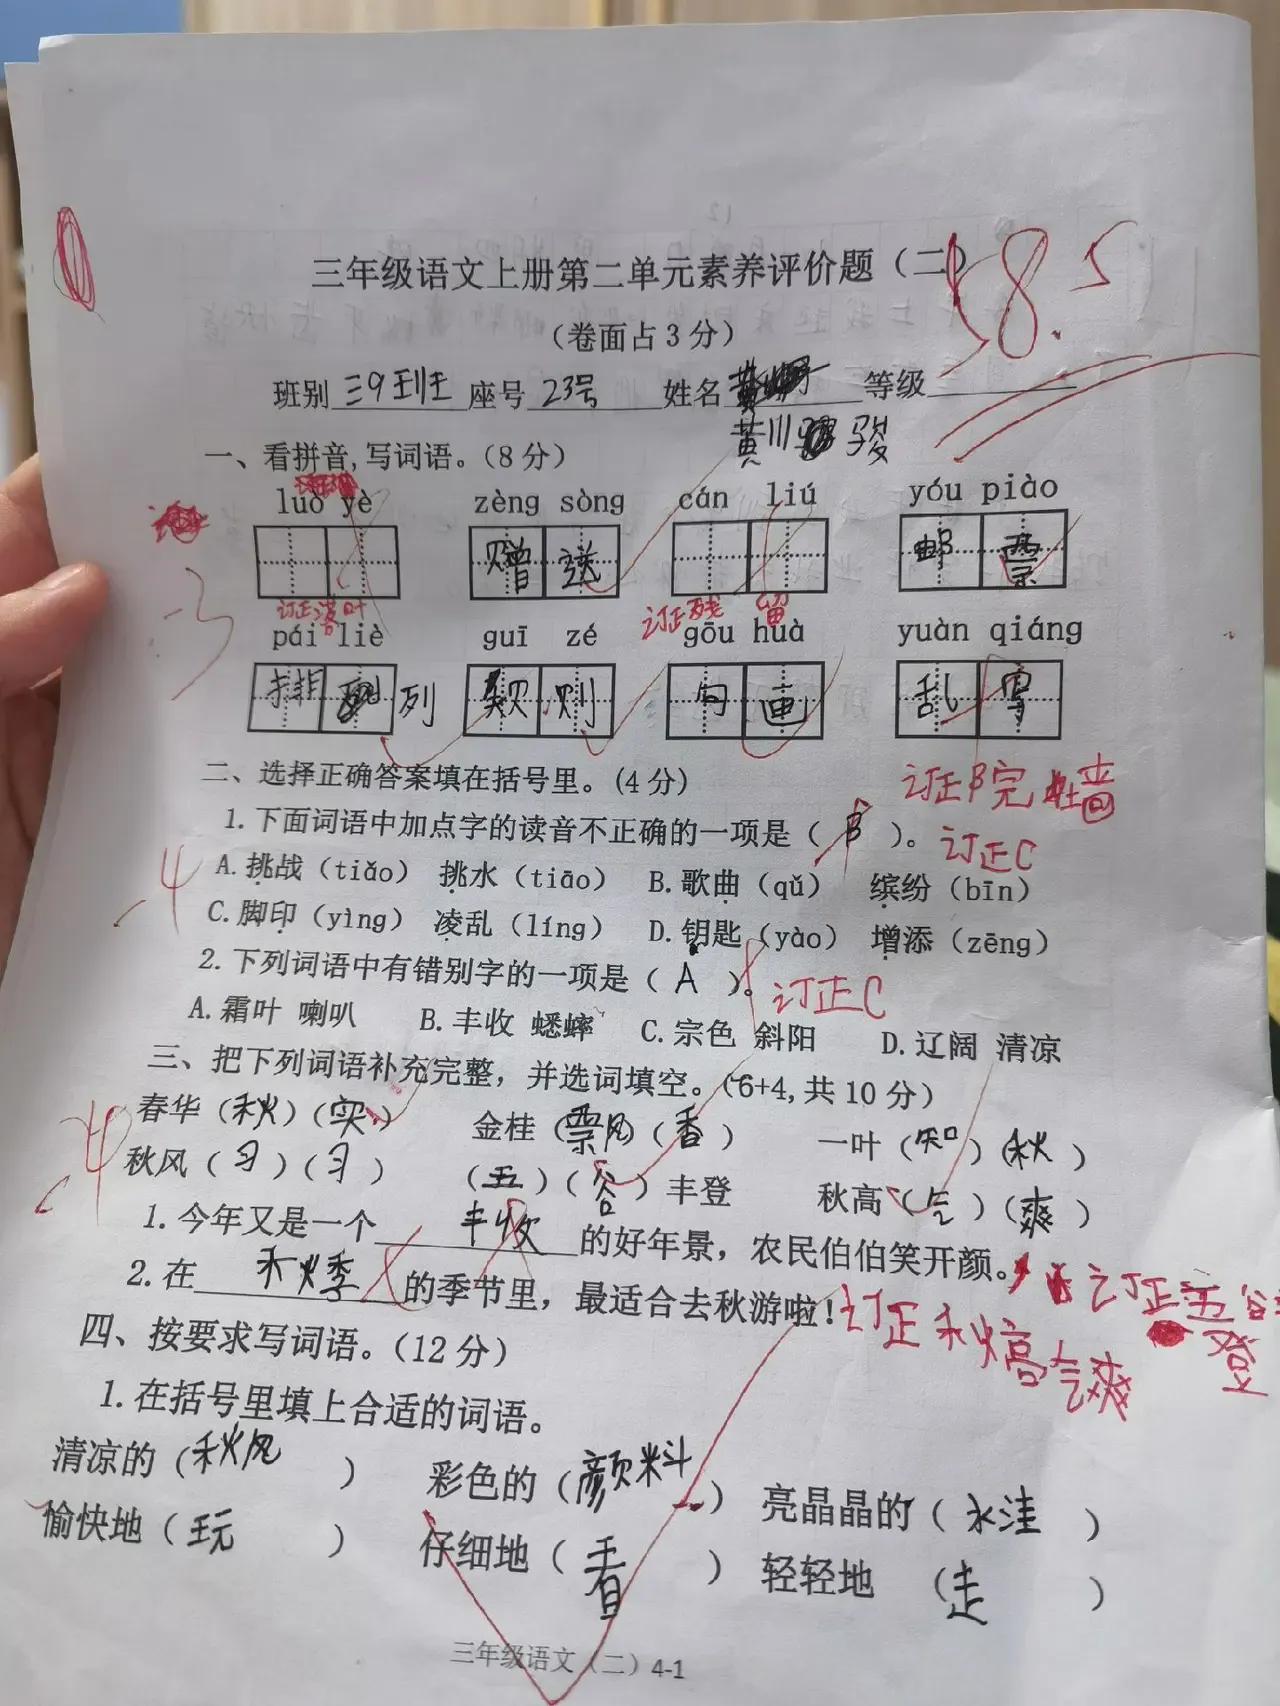 三年级语文上册第二单元素养评价题（二）
58.5
（卷面占3分）
班别 三9班 座号 23号 姓名 等级
黄川 骏
一、看拼音,写词语。（8分）
luò yè zèng sòng cán liú yóu piào
赠送 邮票
订正落叶 订正残留
pái liè guī zé gōu huà yuàn qiáng
-3
排 列 规则 勾画 乱
二、选择正确答案填在括号里。(4分)
订正院墙
1.下面词语中加点字的读音不正确的一项是（ B ）。 订正C
A.挑战（tiǎo） 挑水（tiāo） B.歌曲（qǔ） 缤纷（bīn）
-4
C.脚印（yìng） 凌乱（líng） D.钥匙（yào） 增添（zēng）
2.下列词语中有错别字的一项是（ A ）。 订正C
A.霜叶 喇叭 B.丰收 蟋蟀 C.宗色 斜阳 D.辽阔 清凉
三、把下列词语补充完整，并选词填空。（6+4,共10分）
春华（秋）（实） 金桂（飘）（香） 一叶（知）（秋）
-4
秋风（习）（习） （五）（谷）丰登 秋高（气）（爽）
1.今年又是一个 丰收 的好年景，农民伯伯笑开颜。 订正五谷 登
2.在 秋季 的季节里，最适合去秋游啦！ 订正秋高气爽
四、按要求写词语。（12分）
1.在括号里填上合适的词语。
清凉的（秋风） 彩色的（颜料） 亮晶晶的（水洼）
愉快地（玩） 仔细地（看） 轻轻地（走）
三年级语文（二）4-1